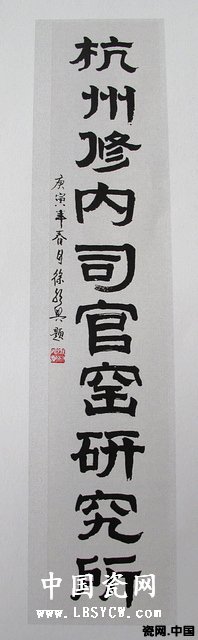 杭州修内司官窑研究所
庚寅年春月徐
题
中国瓷网
www.LBSYCW.com
瓷网.中国